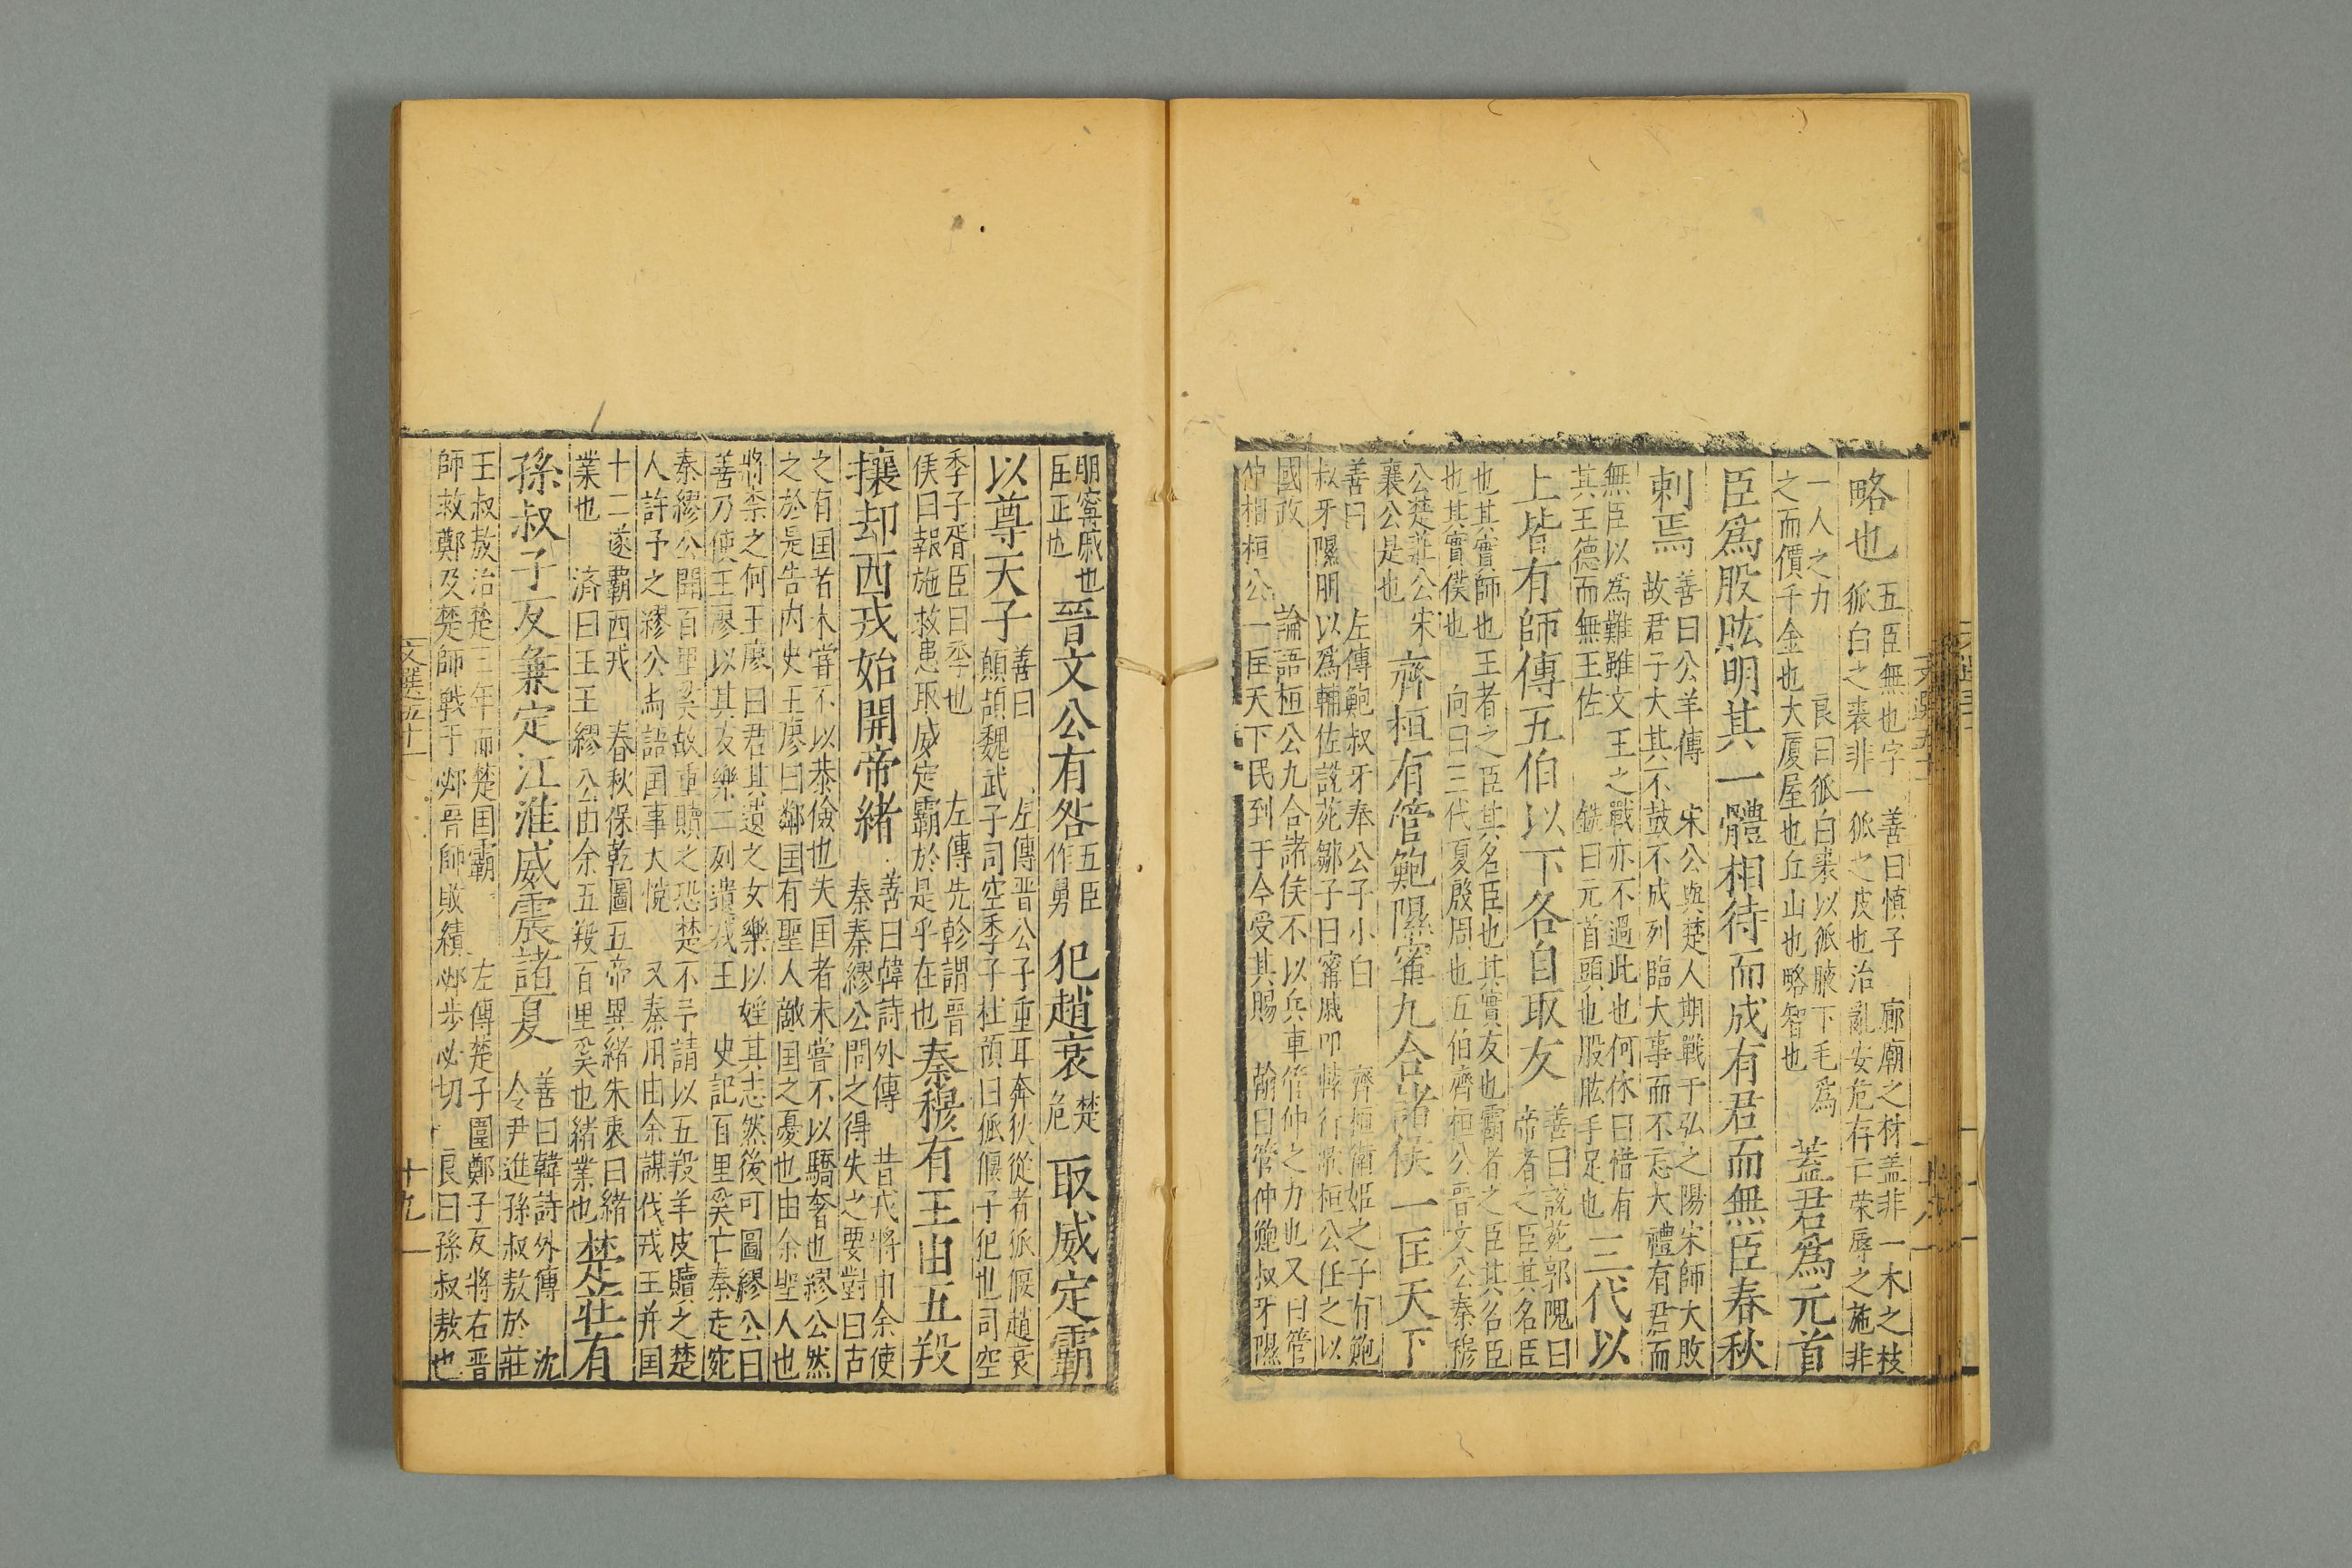 略也
五臣無也字 善曰慎子 廊廟之材盖非一木之枝
狐白之裘非一狐之皮也治亂安危存亡荣辱之施非
一人之力 良曰狐白裘以狐腋下毛爲
之而價千金也大厦屋也丘山也略智也
蓋君爲元首
臣爲股肱明其一體相待而成有君而無臣春秋
刺焉
善曰公羊傳 宋公與楚人期戰于弘之陽宋師大敗
故君子大其不鼓不成列臨大事而不忘大禮有君而
無臣以爲難雖文王之戰亦不過此也何休曰惜有
其王德而無王佐 銑曰元首頭也股肱手足也
三代以
上皆有師傅五伯以下各自取友
善曰説苑郭隗曰
帝者之臣其名臣
也其實師也王者之臣其名臣也其實友也霸者之臣其名臣
也其實僕也 向曰三代夏殷周也五伯齊桓公晋文公秦穆
公楚莊公宋
襄公是也
齊桓有管鮑隰甯九合諸侯一匡天下
善曰 左傳鮑叔牙奉公子小白 齊桓衛姬之子有鮑
叔牙隰明以爲輔佐説苑鄒子曰甯戚叩轅行歌桓公任之以
國政 論語桓公九合諸侯不以兵車管仲之力也又曰管
仲相桓公一匡天下民到于今受其賜 翰曰管仲鮑叔牙隰
明甯戚也
匡正也
晉文公有咎
五臣
作舅
犯趙衰
楚
危
取威定霸
以尊天子
善曰 左傳晋公子重耳奔狄從者狐偃趙衰
顛頡魏武子司空季子杜預曰狐偃子犯也司空
季子胥臣曰季也 左傳先軫謂晋
侯曰報施救患取威定霸於是乎在也
秦穆有王由五羖
攘却西戎始開帝緒
善曰韓詩外傳 昔戎將由余使
秦秦繆公問之得失之要對曰古
之有国者未甞不以恭儉也失国者未甞不以驕奢也繆公然
之於是告内史王廖曰鄰国有聖人敵国之憂也由余聖人也
將柰之何王廖曰君其遺之女樂以婬其志然後可圖繆公曰
善乃使王廖以其女樂二列遺戎王 史記百里奚亡秦走宛
秦繆公聞百里奚故重贖之恐楚不予請以五羖羊皮贖之楚
人許予之繆公与語国事大悦 又秦用由余謀伐戎王并国
十二遂霸西戎 春秋保乾圖五帝異緒朱衷曰緒
業也 濟曰王王繆公由余五羖百里奚也緒業也
楚莊有
孫叔子反兼定江淮威震諸夏
善曰韓詩外傳 沈
令尹進孫叔敖於莊
王叔敖治楚三年而楚国霸 左傳楚子圍鄭子反將右晋
師救鄭及楚師戰于邲晋師敗績邲步必切 良曰孫叔敖也
文選五十一
十九